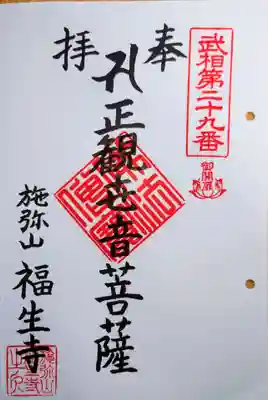 奉拝
武相第二十九番
正観世音菩薩
施弥山
福生寺